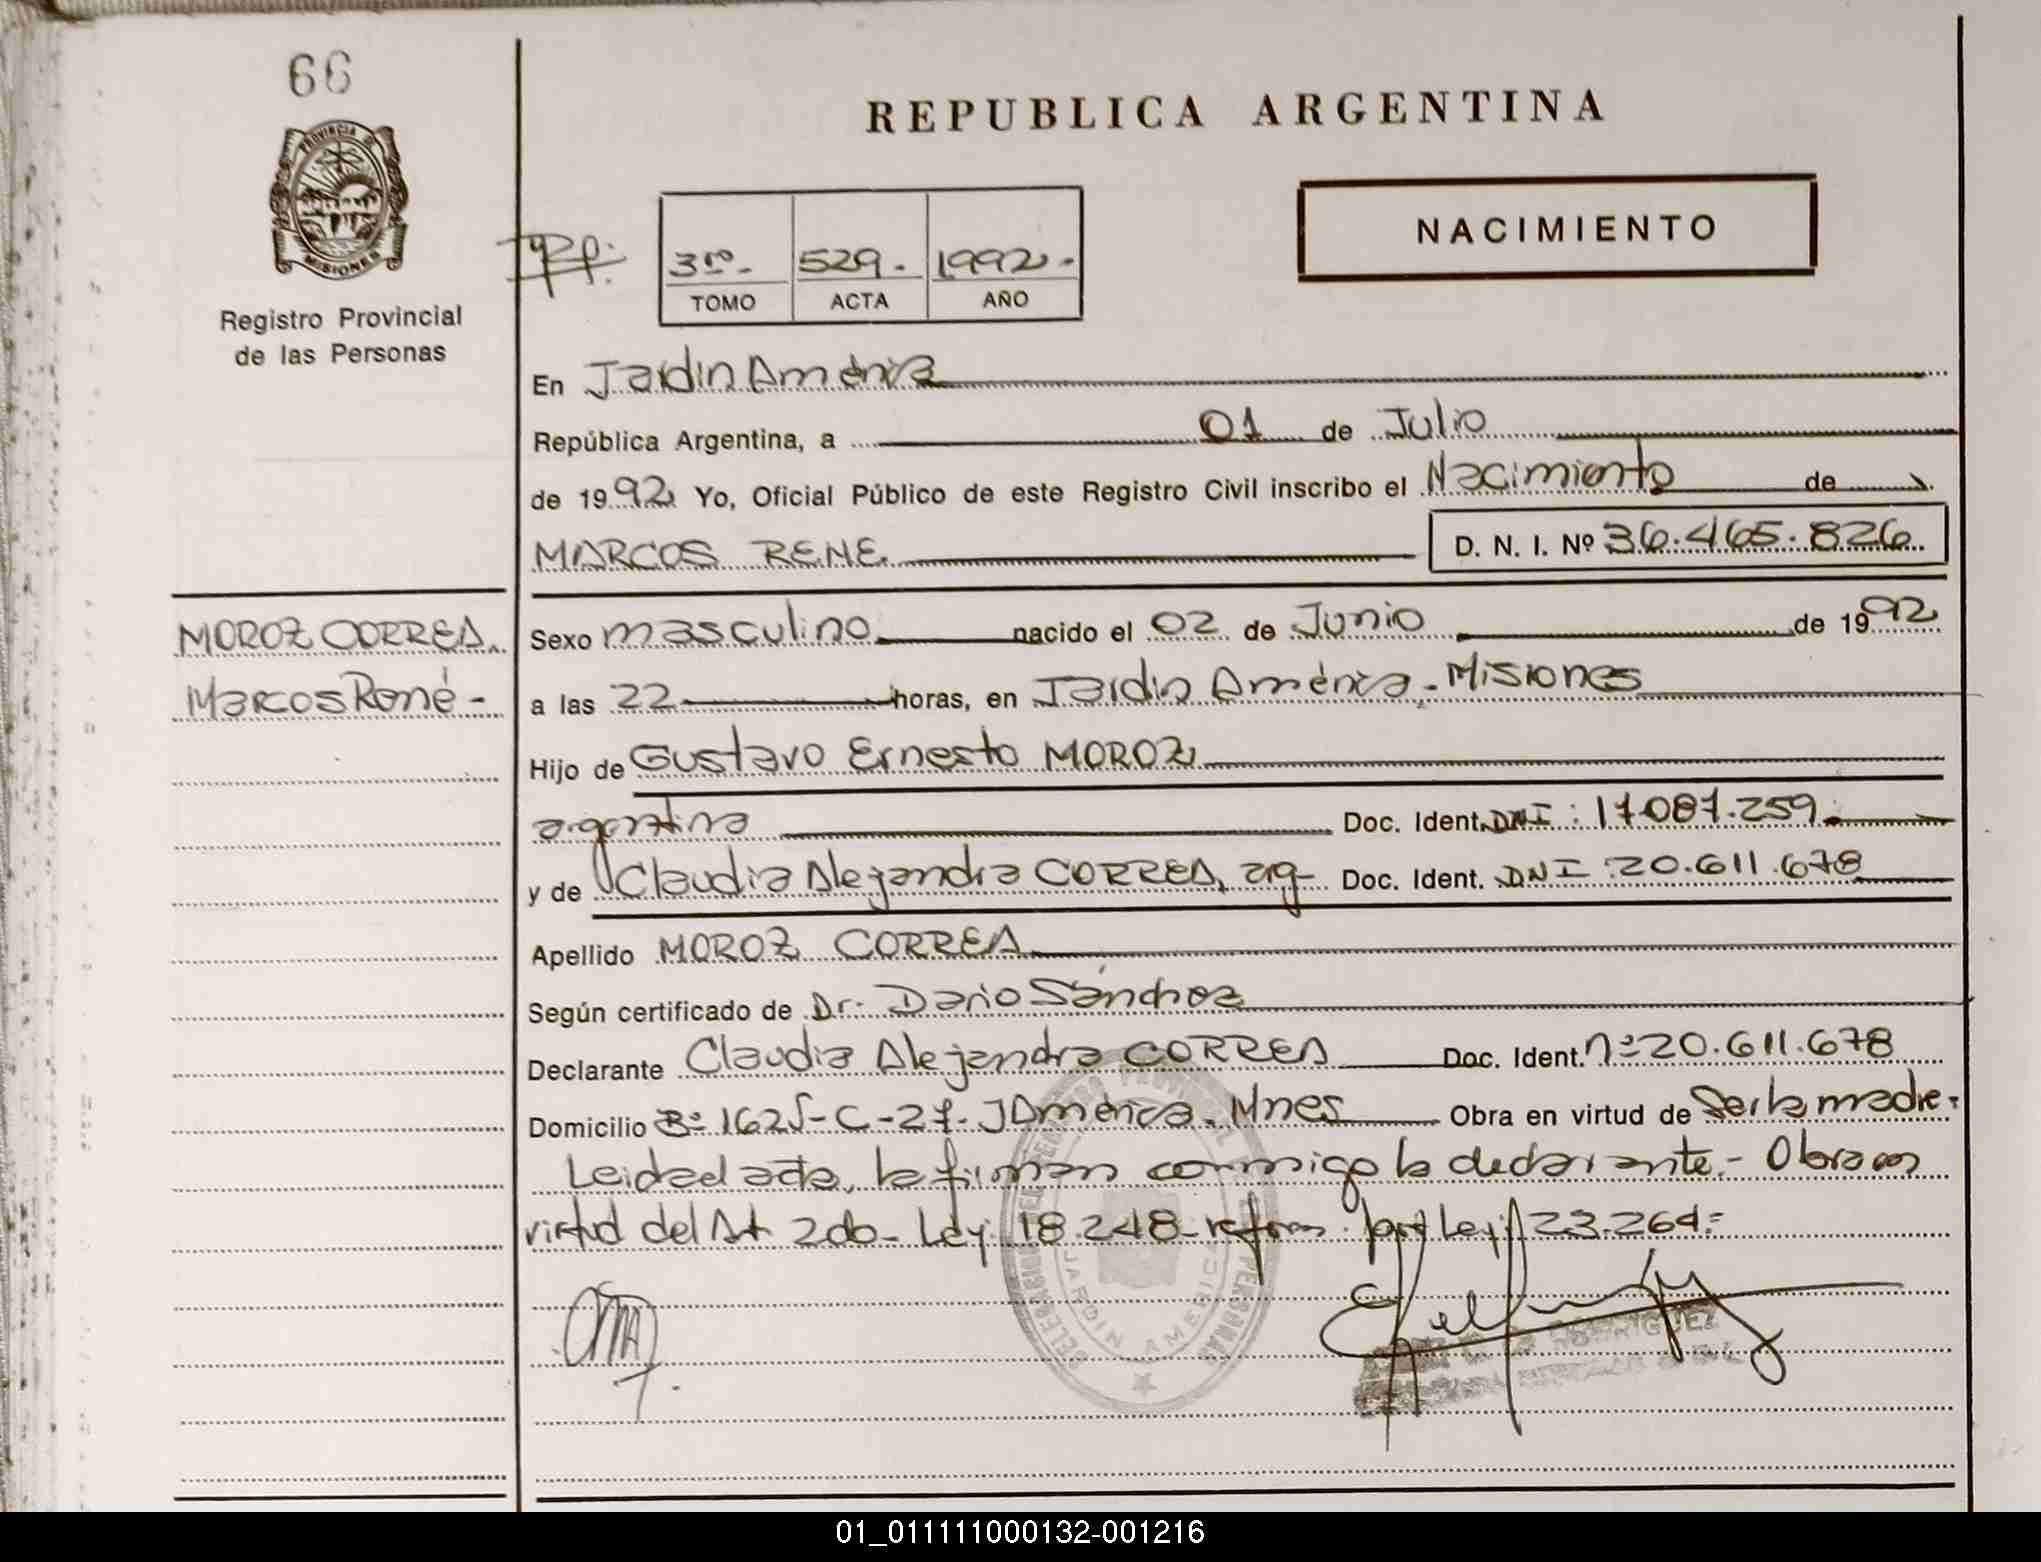 66
REPUBLICA ARGENTINA
PROVINCIA DE
MISIONES
Registro Provincial
de las Personas
3ro- 529.- 1992.-
TOMO ACTA AÑO
NACIMIENTO
En Jardin América
República Argentina, a 01 de Julio
de 1992 Yo, Oficial Público de este Registro Civil inscribo el Nacimiento de
MARCOS RENE D. N. I. Nº 36.465.826
MOROZ CORREA,
Marcos René -
Sexo masculino nacido el 02 de Junio de 1992
a las 22 horas, en Jardin América - Misiones
Hijo de Gustavo Ernesto MOROZ
argentina Doc. Ident. DNI: 17.087.259.
y de Claudia Alejandra CORREA, arg- Doc. Ident. DNI: 20.611.678
Apellido MOROZ CORREA
Según certificado de Dr. Dario Sánchez
Declarante Claudia Alejandra CORREA Doc. Ident. nº 20.611.678
Domicilio Bº 162 - C - 27 - J América. Mnes Obra en virtud de Ser la madre.
Leida el acta, la firman conmigo la declarante.- Obra en
virtud del Art 2do- Ley 18.248- reform. por Ley 23.264.=
DELEGACION DEL REGISTRO PROVINCIAL DE LAS PERSONAS
JARDIN AMERICA
RODRIGUEZ
01_011111000132-001216